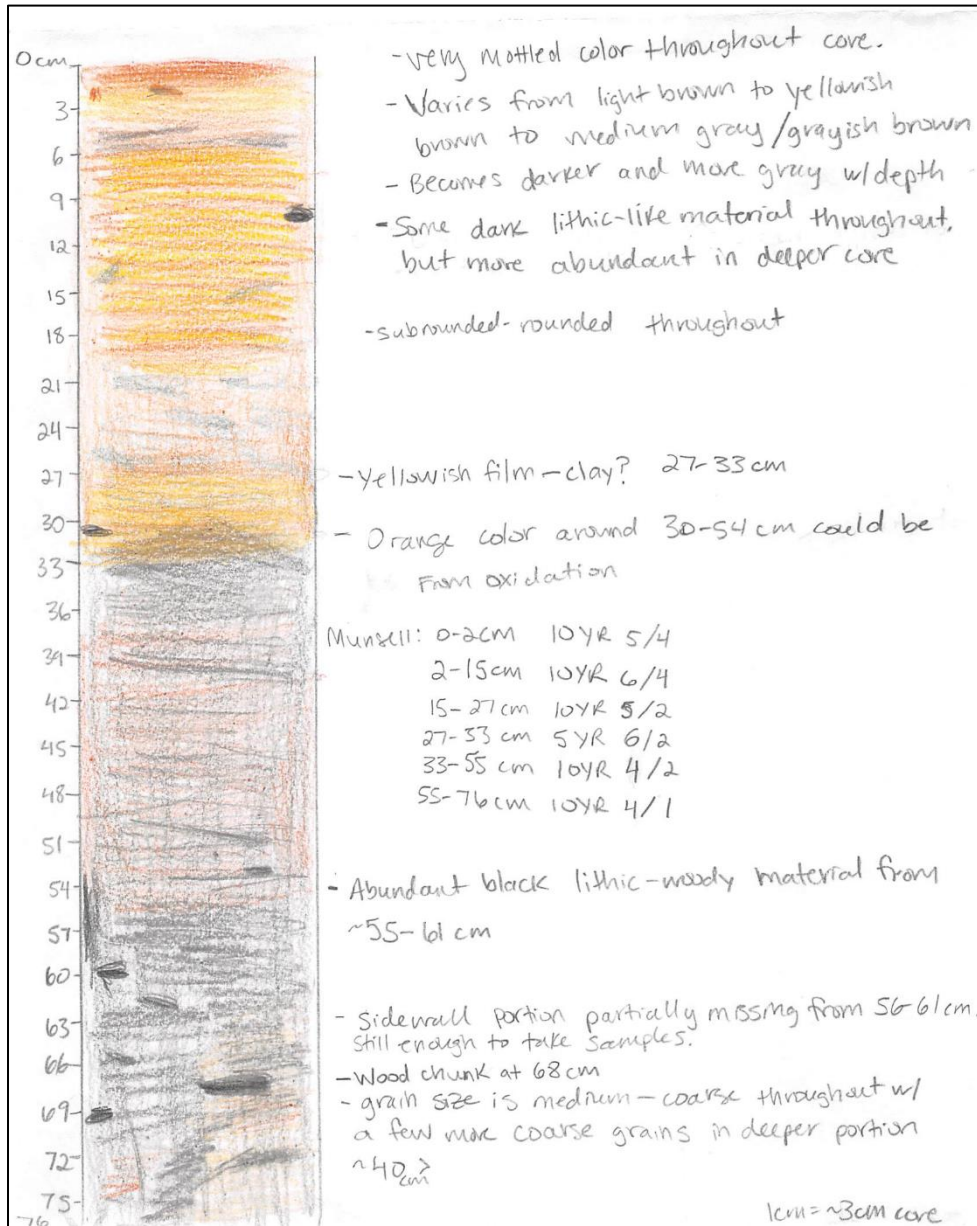 0cm
3
6
9
12
15
18
21
24
27
30
33
36
39
42
45
48
51
54
57
60
63
66
69
72
75
76
- very mottled color throughout core.
- Varies from light brown to yellowish
brown to medium gray/grayish brown
- Becomes darker and more gray w/depth
- Some dark lithic-like material throughout,
but more abundant in deeper core
- subrounded-rounded throughout
- Yellowish film - clay? 27-33cm
- Orange color around 30-54cm could be
from oxidation
Munsell: 0-2cm 10YR 5/4
2-15cm 10YR 6/4
15-27cm 10YR 5/2
27-33 cm 5YR 6/2
33-55 cm 10YR 4/2
55-76cm 10YR 4/1
- Abundant black lithic-woody material from
~55-61cm
- Sidewall portion partially missing from 56-61cm.
still enough to take samples.
- Wood chunk at 68cm
- grain size is medium - coarse throughout w/
a few more coarse grains in deeper portion
~40cm>
1cm = ~3cm core